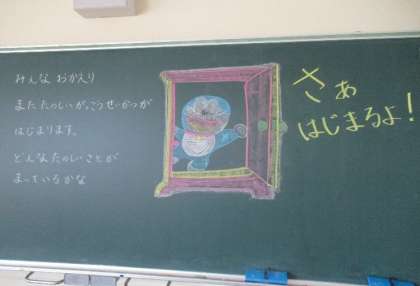 みんな おかえり
またたのしいがっこうせいかつが
はじまります。
どんなたのしいことが
まっているかな
さぁ
はじまるよ!